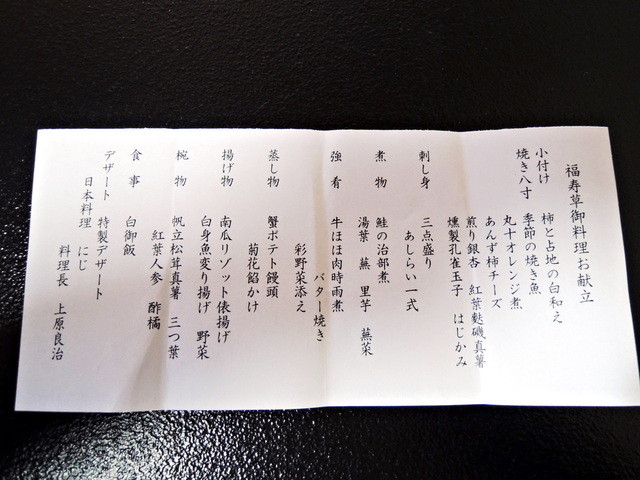 福寿草御料理お献立
小付け 柿と占地の白和え
焼き八寸 季節の焼き魚
丸十オレンジ煮
あんず柿チーズ
煎り銀杏 紅葉麩磯真薯
燻製孔雀玉子 はじかみ
刺し身 三点盛り
あしらい一式
煮物 鮭の治部煮
湯葉 蕪 里芋 蕪菜
強肴 牛ほほ肉時雨煮
バター焼き
彩野菜添え
蒸し物 蟹ポテト饅頭
菊花餡かけ
揚げ物 南瓜リゾット俵揚げ
白身魚変り揚げ 野菜
椀物 帆立松茸真薯 三つ葉
紅葉人参 酢橘
食事 白御飯
デザート 特製デザート
日本料理 にじ
料理長 上原良治